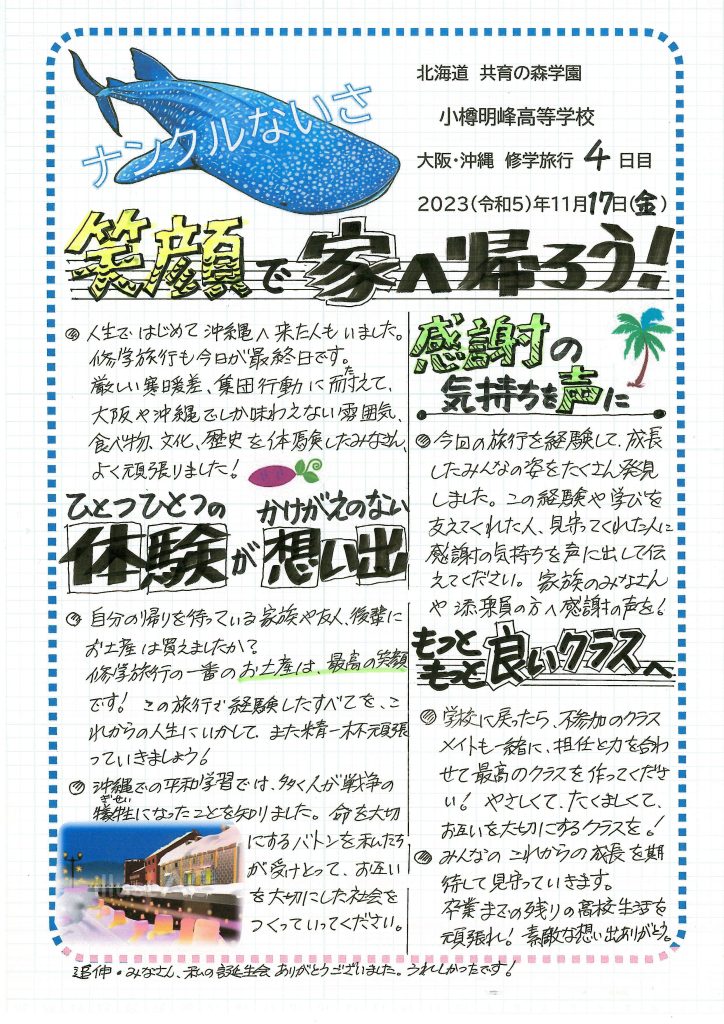 ナンクルないさ
北海道 共育の森学園
小樽明峰高等学校
大阪・沖縄 修学旅行 4日目
2023(令和5)年11月17日(金)
笑顔で家へ帰ろう!
人生ではじめて沖縄へ来た人もいました。
修学旅行も今日が最終日です。
厳しい寒暖差、集団行動に耐えて、
た
大阪や沖縄でしか味わえない雰囲気、
食べ物、文化、歴史を体験したみなさん、
よく頑張りました!
ひとつひとつの かけがえのない
体験が想い出
自分の帰りを待っている家族や友人、後輩に
お土産は買えましたか?
修学旅行の一番のお土産は、最高の笑顔
です! この旅行で経験したすべてを、こ
れからの人生にいかして、また精一杯頑張
っていきましょう!
沖縄での平和学習では、多く人が戦争の
ぎせい
犠牲になったことを知りました。命を大切
にするバトンを私たち
が受けとって、お互い
を大切にした社会を
つくっていってください。
感謝の
気持ちを声に
今回の旅行を経験して、成長
したみんなの姿をたくさん発見
しました。この経験や学びを
支えてくれた人、見守ってくれた人に
感謝の気持ちを声に出して伝
えてください。家族のみなさん
や添乗員の方へ感謝の声を!
もっと
もっと良いクラスへ
学校に戻ったら、不参加のクラス
メイトも一緒に、担任と力を合わ
せて最高のクラスを作ってくださ
い! やさしくて、たくましくて、
お互いを大切にするクラスを。!
みんなのこれからの成長を期
待して見守っていきます。
卒業までの残りの高校生活を
頑張れ! 素敵な想い出ありがとう。
追伸・みなさん、私の誕生会ありがとうございました。うれしかったです!